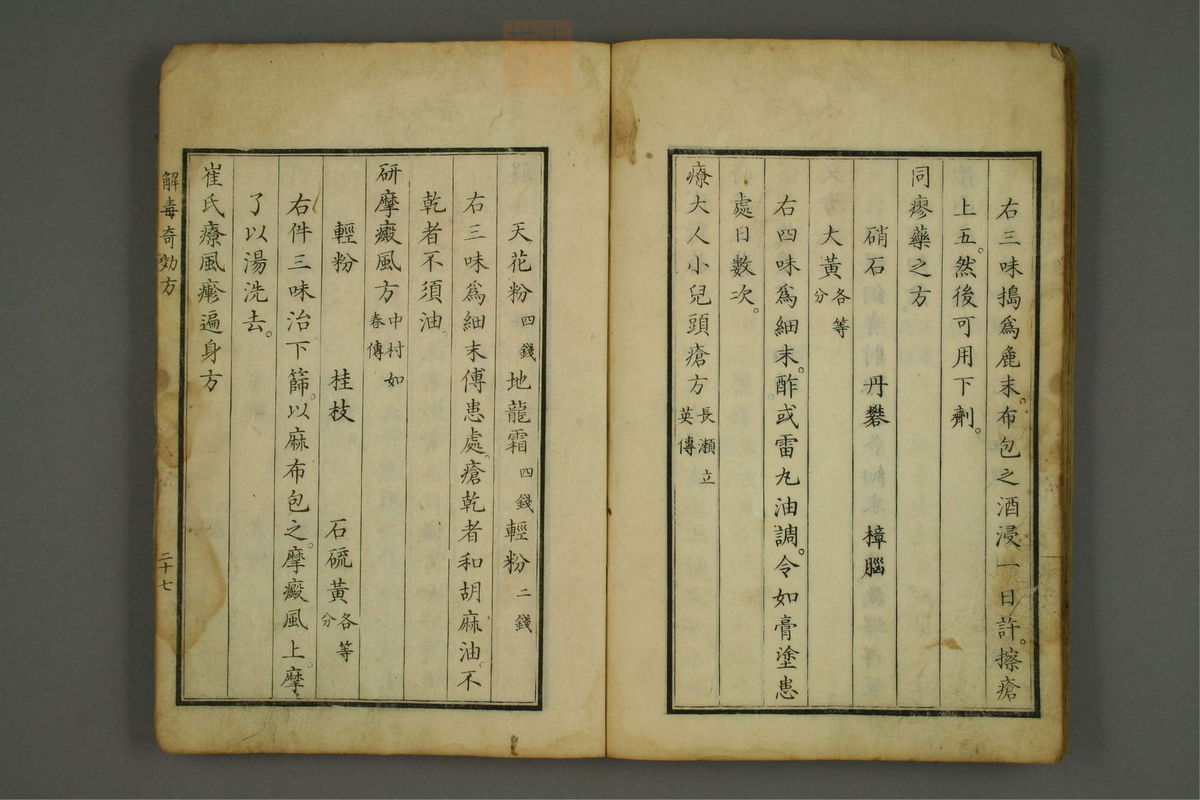 右三味搗爲麁末。布包之酒浸一日許。擦瘡
上五。然後可用下劑。
同瘳藥之方
硝石 丹礬 樟腦
大黃各等分
右四味爲細末。酢或雷丸油調。令如膏塗患
處日數次。
療大人小兒頭瘡方長瀬立英傳
天花粉四錢地龍霜四錢輕粉二錢
右三味爲細末傅患處。瘡乾者和胡麻油。不
乾者不須油。
研摩癜風方中村如春傳
輕粉 桂枝 石硫黃各等分
右件三味治下篩。以麻布包之。摩癜風上。摩
了以湯洗去。
崔氏療風瘮遍身方
解毒奇効方
二十七